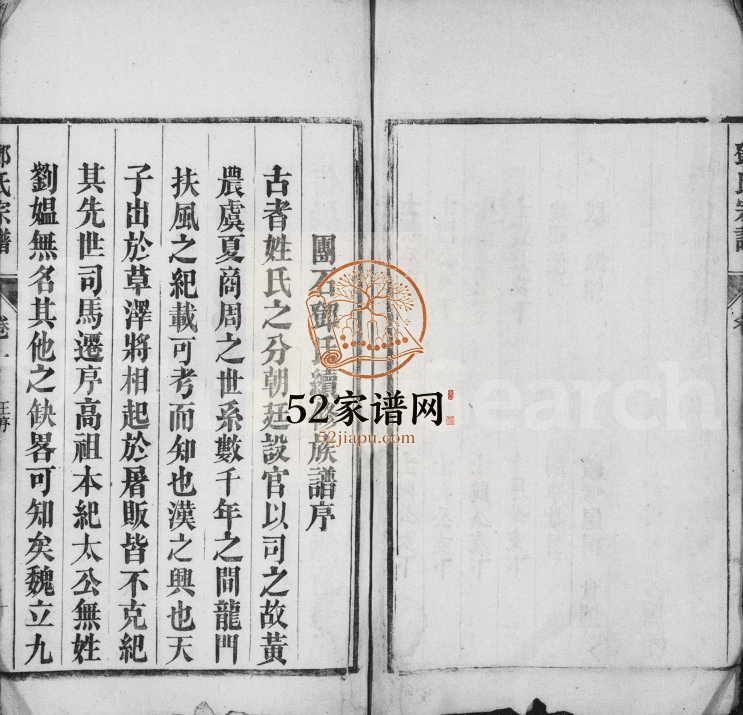 團石鄧氏續修族譜序
古者姓氏之分朝廷設官以司之故黃
農虞夏商周之世系數千年之間龍門
扶風之紀載可考而知也漢之興也天
子出於草澤將相起於屠販皆不克紀
其先世司馬遷序高祖本紀太公無姓
劉媼無名其他之缺畧可知矣魏立九
鄧氏宗譜
卷一
52家谱网
52jiapu.com
Search